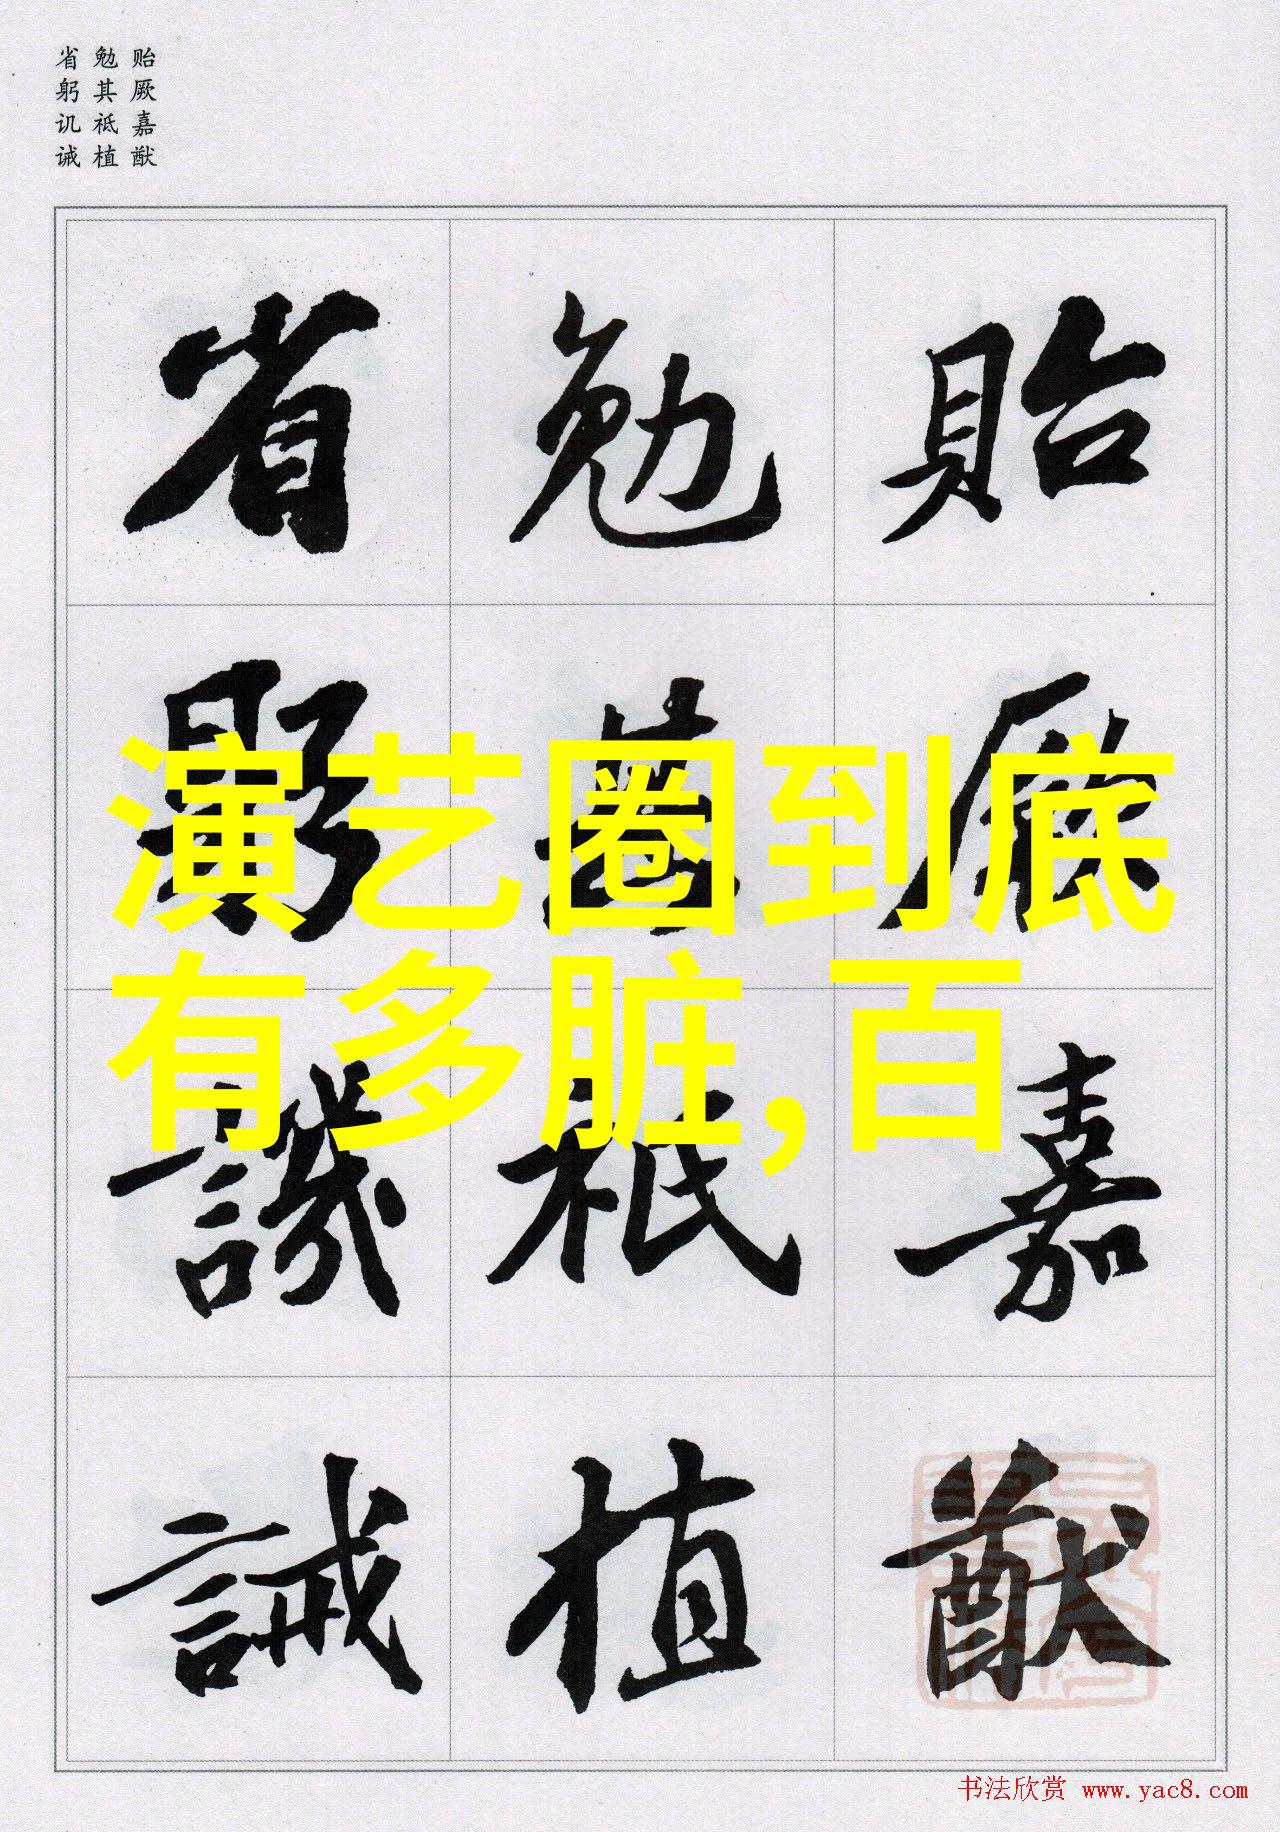 贻厥嘉猷
勉其祗植
省躬讥诫
貽厥嘉猷
勉其祗植
省躬譏誡
演艺圈到底
有多脏,百
书法欣赏 www.yac8.com